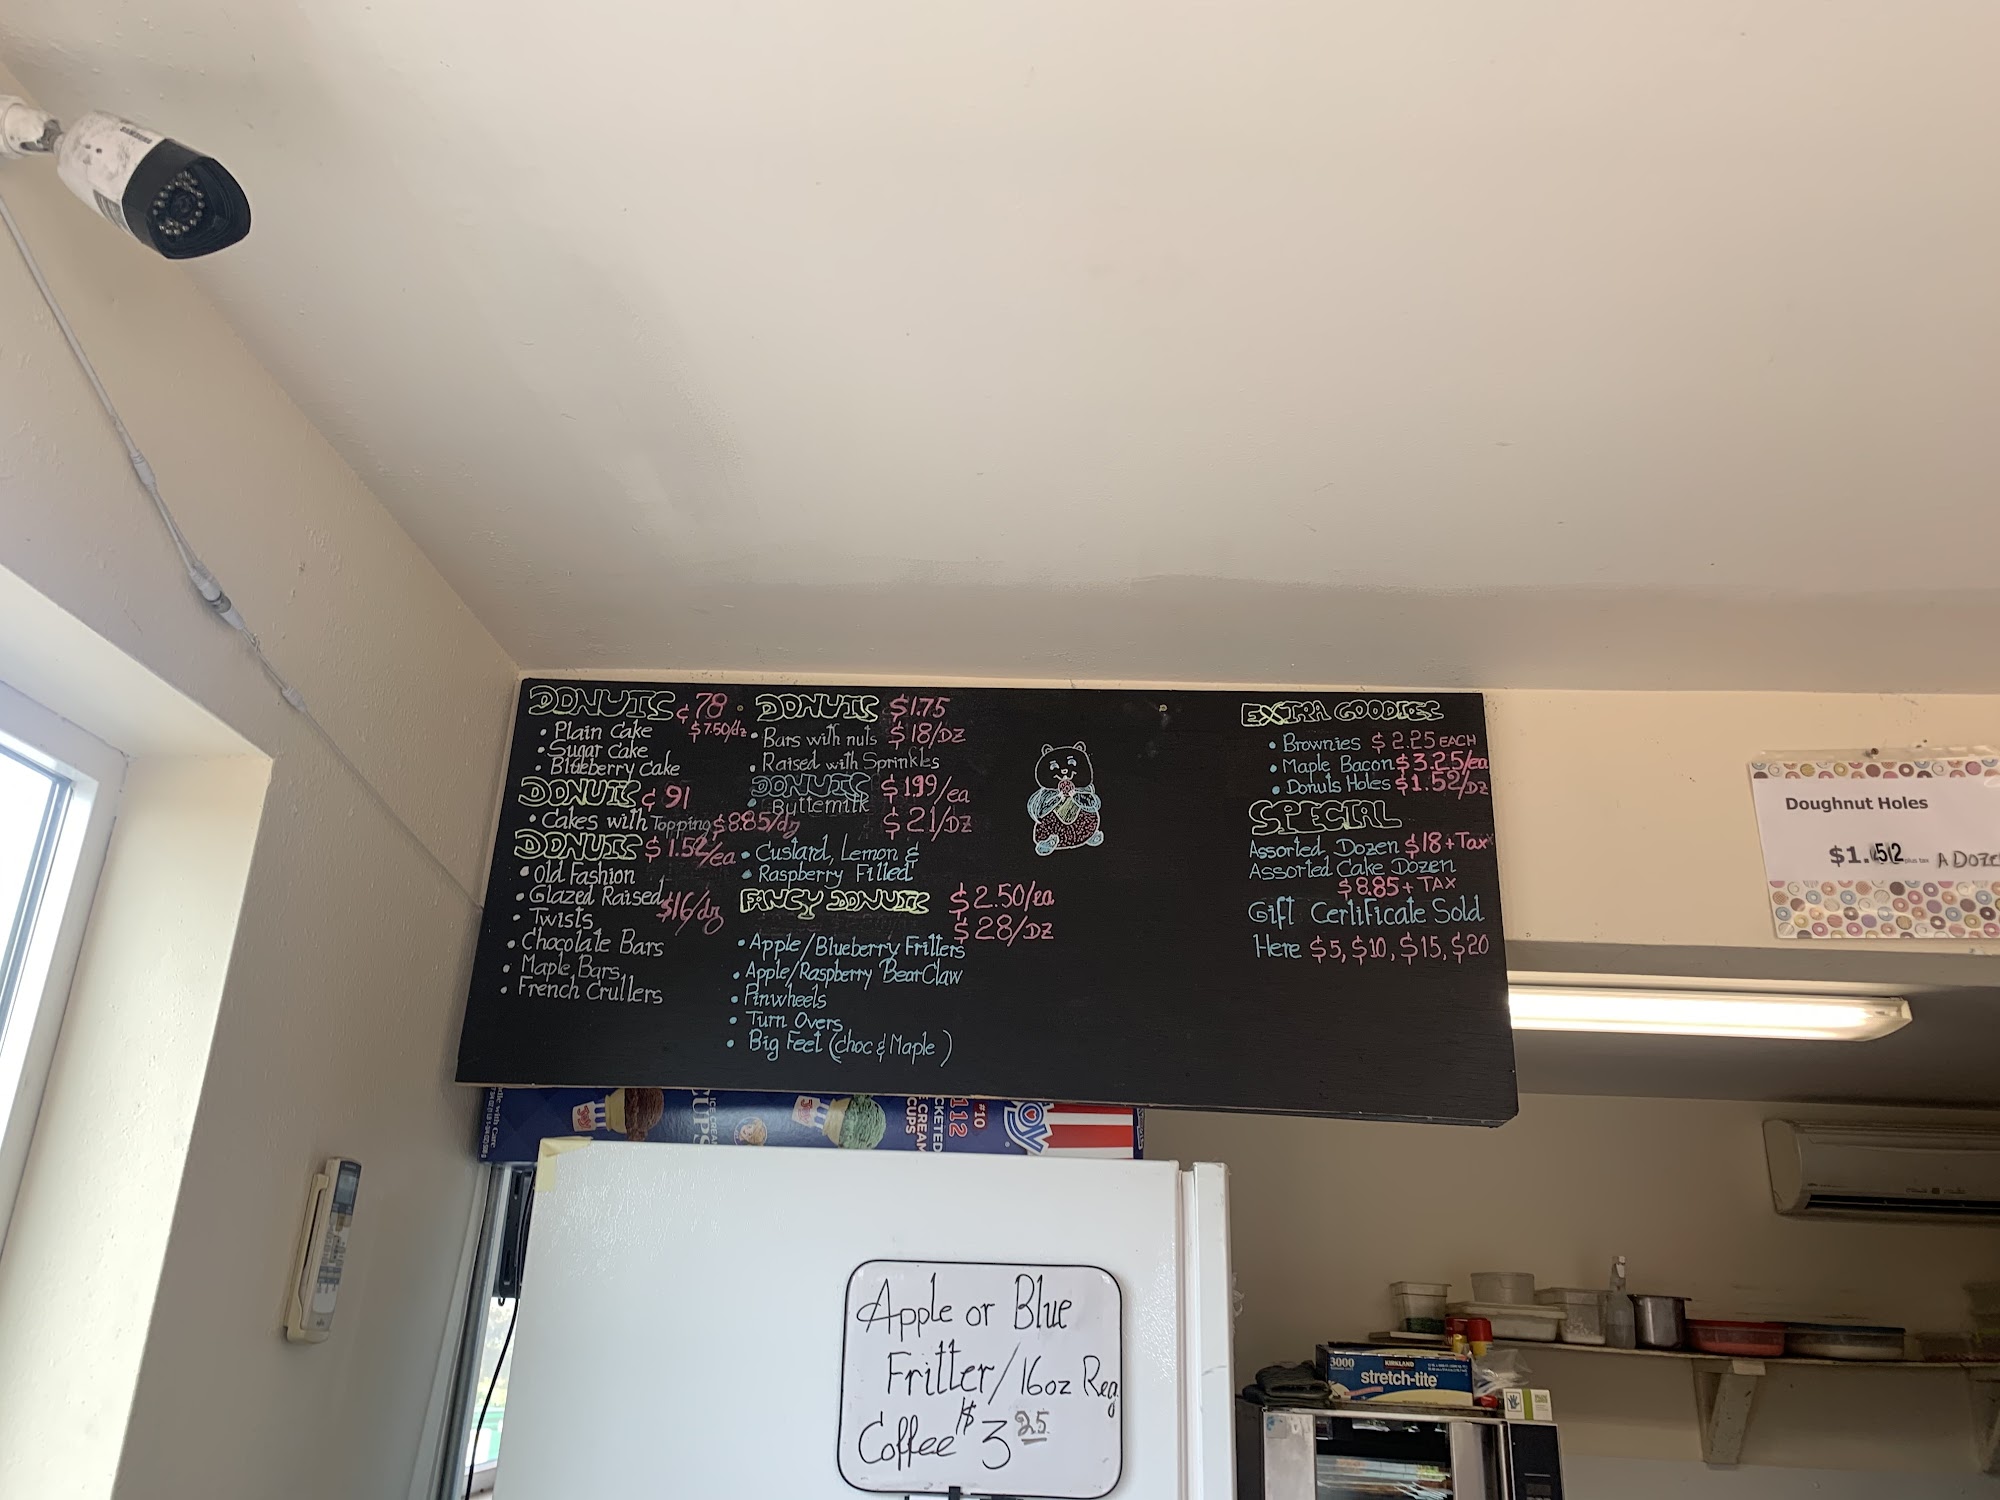 DONUTS ¢78
$7.50/dz
• Plain Cake
• Sugar Cake
• Blueberry Cake
DONUTS ¢91
• Cakes with Topping $8.85/dz
DONUTS $1.52/ea
• Old Fashion
• Glazed Raised $16/dz
• Twists
• Chocolate Bars
• Maple Bars
• French Crullers
DONUTS $1.75
• Bars with nuts $18/DZ
• Raised with Sprinkles
DONUTS $1.99/ea
• Buttermilk $21/DZ
• Custard, Lemon &
• Raspberry Filled
FANCY DONUTS $2.50/ea
$28/DZ
• Apple/Blueberry Fritters
• Apple/Raspberry Bear Claw
• Pinwheels
• Turn Overs
• Big Feet (choc & Maple)
EXTRA GOODIES
• Brownies $2.25 EACH
• Maple Bacon $3.25/ea
• Donuts Holes $1.52/DZ
SPECIAL
Assorted Dozen $18+Tax
Assorted Cake Dozen
$8.85+TAX
Gift Certificate Sold
Here $5, $10, $15, $20
Doughnut Holes
$1.52 plus tax A DOZE
#10
112
CUPS
JOY
Apple or Blue
Fritter/16oz Reg.
Coffee $3 25
3000
KIRKLAND
stretch-tite